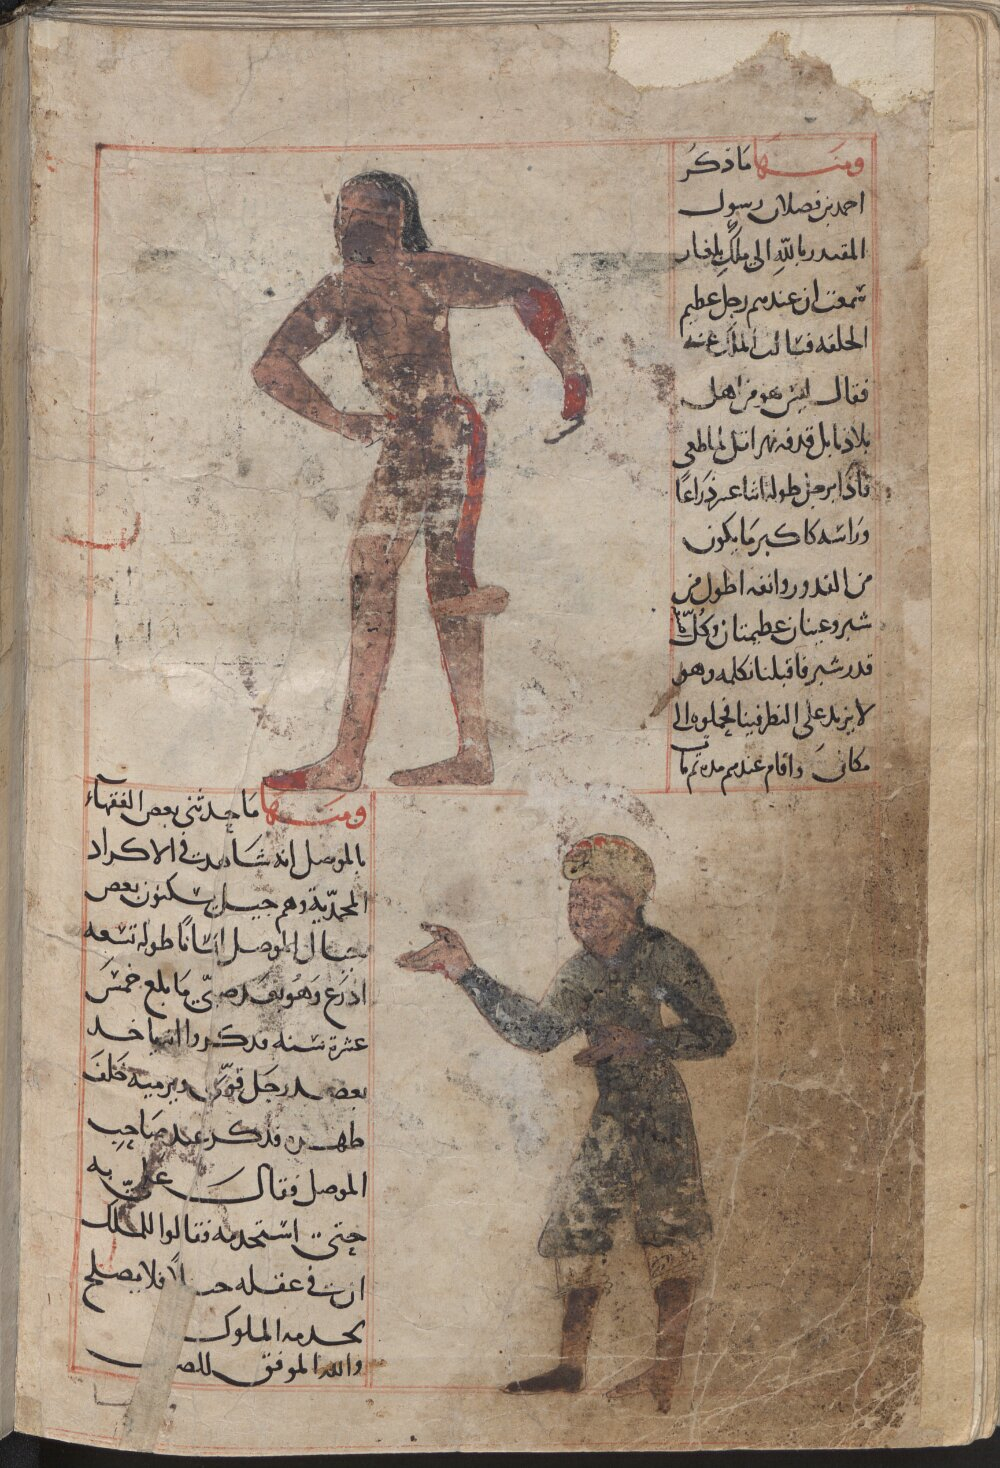 ومنها ما ذكر
احمد بن فصلان رسول
المقتدر بالله الى ملك بلغار
سمعت ان عندهم رجل عظيم
الخلقه فسالت الملك عنه
فقال ليس هو من اهل
بلادنا بل قدفه نهر اتل لما طغى
فاذا برجل طوله اثنا عشر ذراعًا
وراسه كاكبر ما يكون
من القدور وانفه اطول من
شبر وعينان عظيمتان وكل
قدر شبر فاقبلنا نكلمه وهو
لا يزيد على النظر فينا فحملوه الى
مكانى واقام عندهم مده ثم مات
ومنها ما حدثنى بعض الفقهاء
بالموصل انه شاهد فى الاكراد
المحمدية وهم جيل يسكنون بعض
جبال الموصل انسانًا طوله تسعه
اذرع وهو بعد صبي ما بلغ خمس
عشرة سنه فذكروا انه ياخد
بعضد رجل قوى ويرميه خلف
ظهره فدكر عند صاحب
الموصل فقال على به
حتى استخدمه فقالوا للملك
ان فى عقله فلا يصلح
لخدمه الملوك
والله الموفق